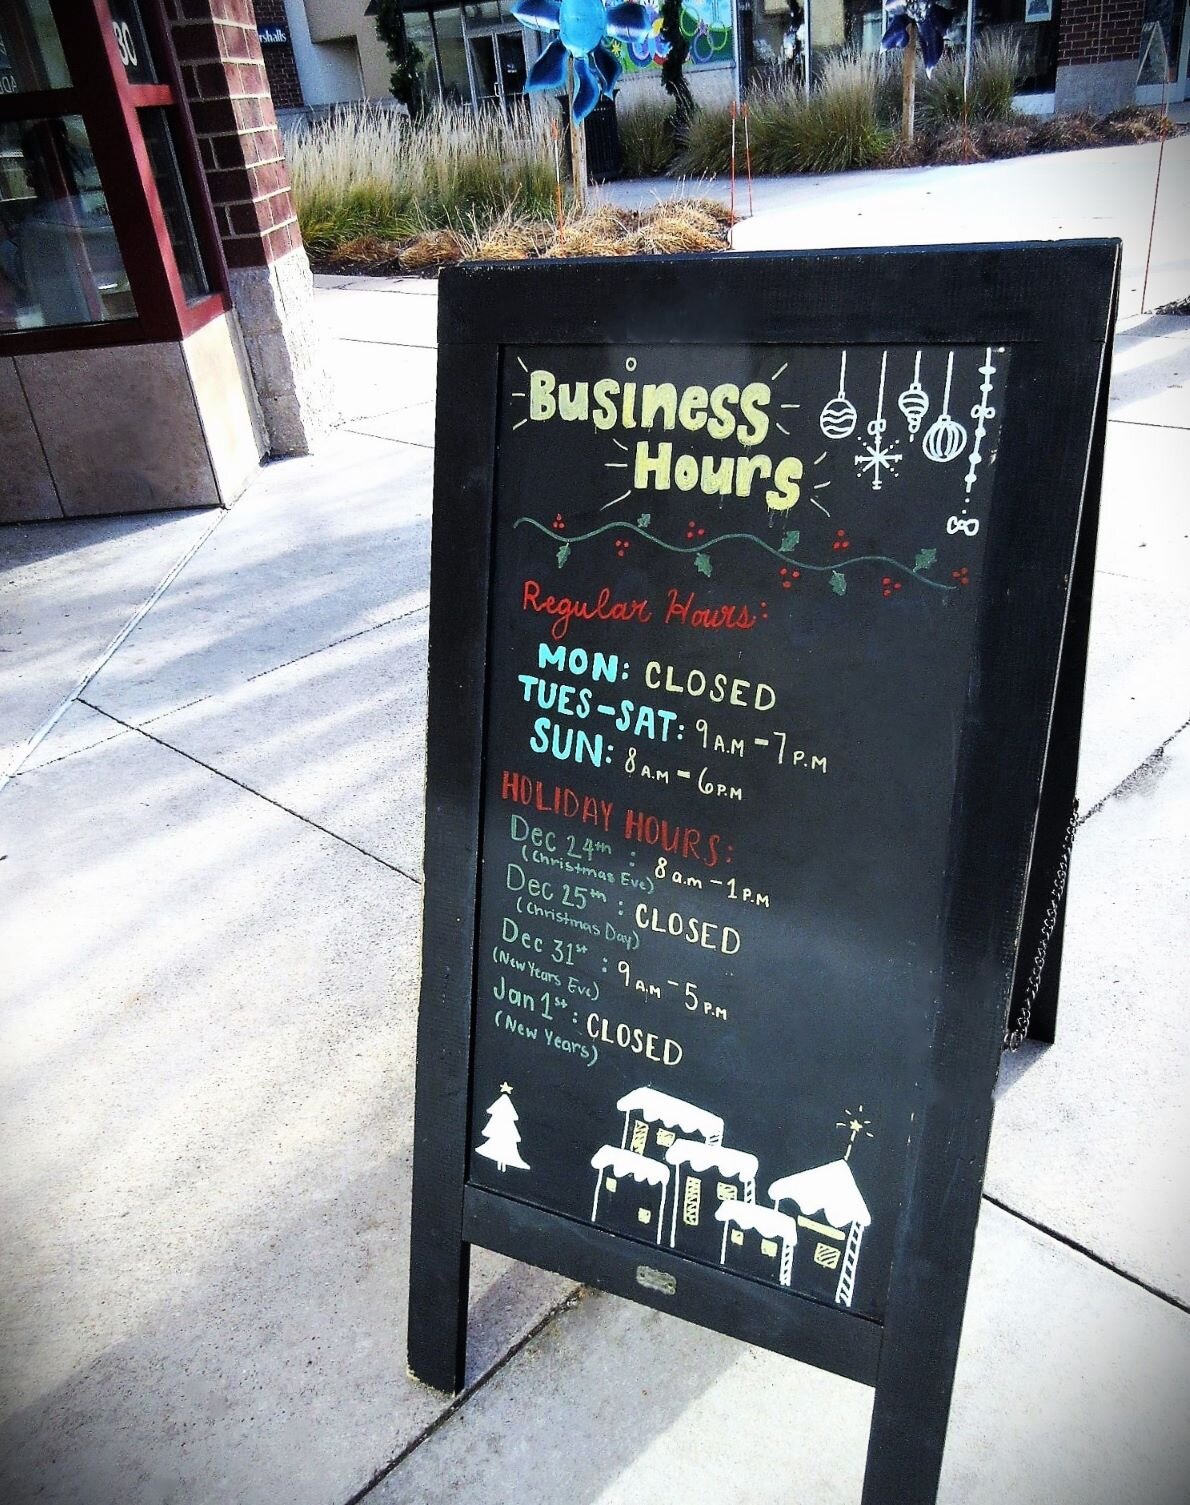 30
Business
Hours
Regular Hours:
MON: CLOSED
TUES-SAT: 9 A.M - 7 P.M
SUN: 8 A.M - 6 P.M
HOLIDAY HOURS:
Dec 24th : 8 a.m - 1 P.M
(Christmas Eve)
Dec 25th : CLOSED
(Christmas Day)
Dec 31st : 9 A.M - 5 P.M
(New Years Eve)
Jan 1st : CLOSED
(New Years)